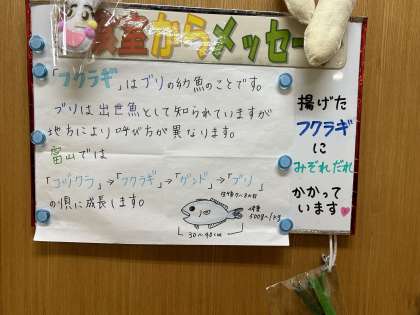 室からメッセー
「フクラギ」はブリの幼魚のことです。
ブリは出世魚として知られていますが
地方により呼び方が異なります。
富山では
「コヅクラ」→「フクラギ」→「ガンド」→「ブリ」
の順に成長します。
体重
500g〜1kg
30〜40cm
揚げた
フクラギ
に
みぞれだれ
かかって
います